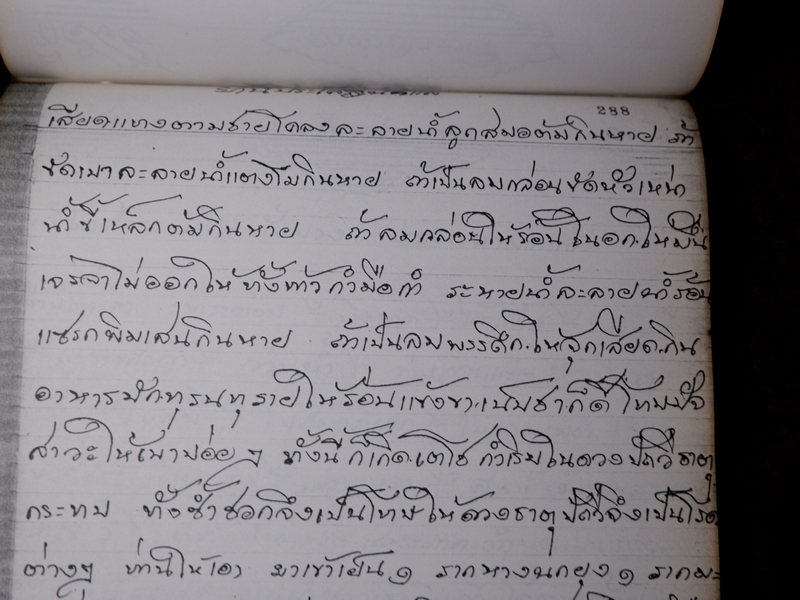 288
เสียดแทงตามชายโครงละลายน้ำลูกสมอต้มกินหาย ถ้า
ขัดเบาละลายน้ำแตงโมกินหาย ถ้าเป็นลมกล่อนขัดหัวเหน่า
น้ำขี้เหล็กต้มกินหาย ถ้าลมกล่อนให้ร้อนในอก.ให้มึน
เจรจาไม่ออกให้ ระหายน้ำละลายน้ำร้อน
แซรกพิมเสนกินหาย ถ้าเป็นลมพรรดึก.ให้จุกเสียด.กิน
อาหารมักทุรนทุรายให้ร้อนแข้งขา.เหน็บชาก็ดี
ให้เบาบ่อย ๆ ทั้งนี้ก็เกิด.เตโชกำเริบในดวงปัถวีธาตุ
กระทบ ทั้งช้ำชอกจึงเป็นโทษให้ดวงธาตุปัถวีจึงเป็นโรค
ต่างๆ ท่านให้เอา ยาเข้าเย็น ๑ รากหางนกยุง ๑ รากมะ